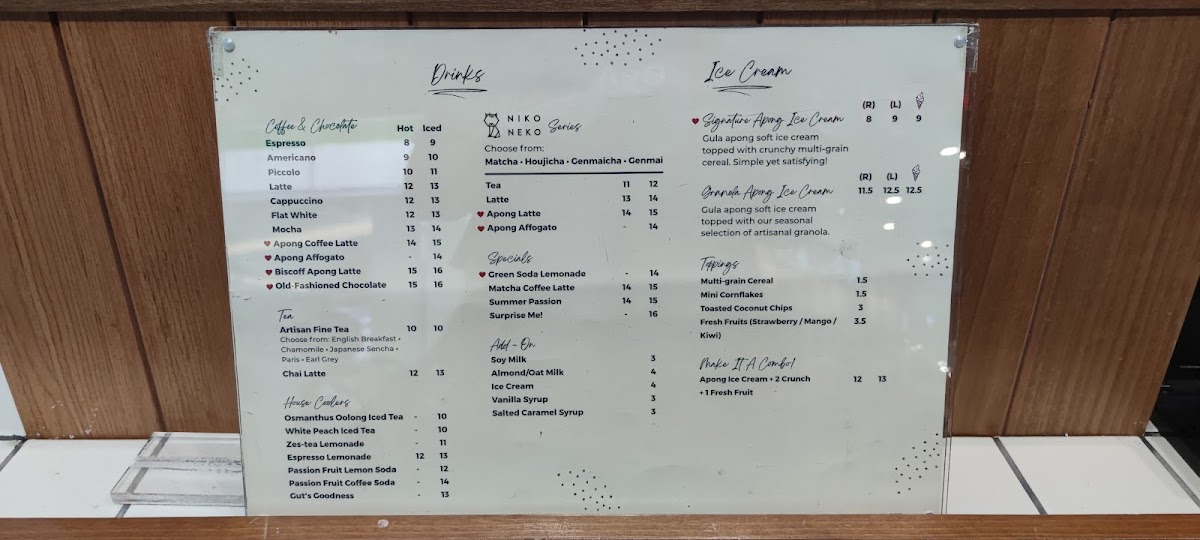 Drinks
Coffee & Chocolate Hot Iced
Espresso 8 9
Americano 9 10
Piccolo 10 11
Latte 12 13
Cappuccino 12 13
Flat White 12 13
Mocha 13 14
Apong Coffee Latte 14 15
Apong Affogato - 14
Biscoff Apong Latte 15 16
Old-Fashioned Chocolate 15 16
Tea
Artisan Fine Tea 10 10
Choose from: English Breakfast •
Chamomile • Japanese Sencha •
Paris • Earl Grey
Chai Latte 12 13
House Coolers
Osmanthus Oolong Iced Tea - 10
White Peach Iced Tea - 10
Zes-tea Lemonade - 11
Espresso Lemonade 12 13
Passion Fruit Lemon Soda - 12
Passion Fruit Coffee Soda - 14
Gut's Goodness - 13
NIKO
NEKO Series
Choose from:
Matcha • Houjicha • Genmaicha • Genmai
Tea 11 12
Latte 13 14
Apong Latte 14 15
Apong Affogato - 14
Specials
Green Soda Lemonade - 14
Matcha Coffee Latte 14 15
Summer Passion 14 15
Surprise Me! - 16
Add - On
Soy Milk 3
Almond/Oat Milk 4
Ice Cream 4
Vanilla Syrup 3
Salted Caramel Syrup 3
Ice Cream
(R) (L)
Signature Apong Ice Cream 8 9 9
Gula apong soft ice cream
topped with crunchy multi-grain
cereal. Simple yet satisfying!
(R) (L)
Granola Apong Ice Cream 11.5 12.5 12.5
Gula apong soft ice cream
topped with our seasonal
selection of artisanal granola.
Toppings
Multi-grain Cereal 1.5
Mini Cornflakes 1.5
Toasted Coconut Chips 3
Fresh Fruits (Strawberry / Mango / 3.5
Kiwi)
Make It A Combo!
Apong Ice Cream + 2 Crunch 12 13
+ 1 Fresh Fruit